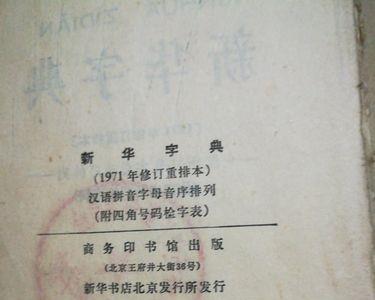 新华字典
(1971年修订重排本)
汉语拼音字母音序排列
(附四角号码检字表)
商务印书馆出版
(北京王府井大街36号)
新华书店北京发行所发行